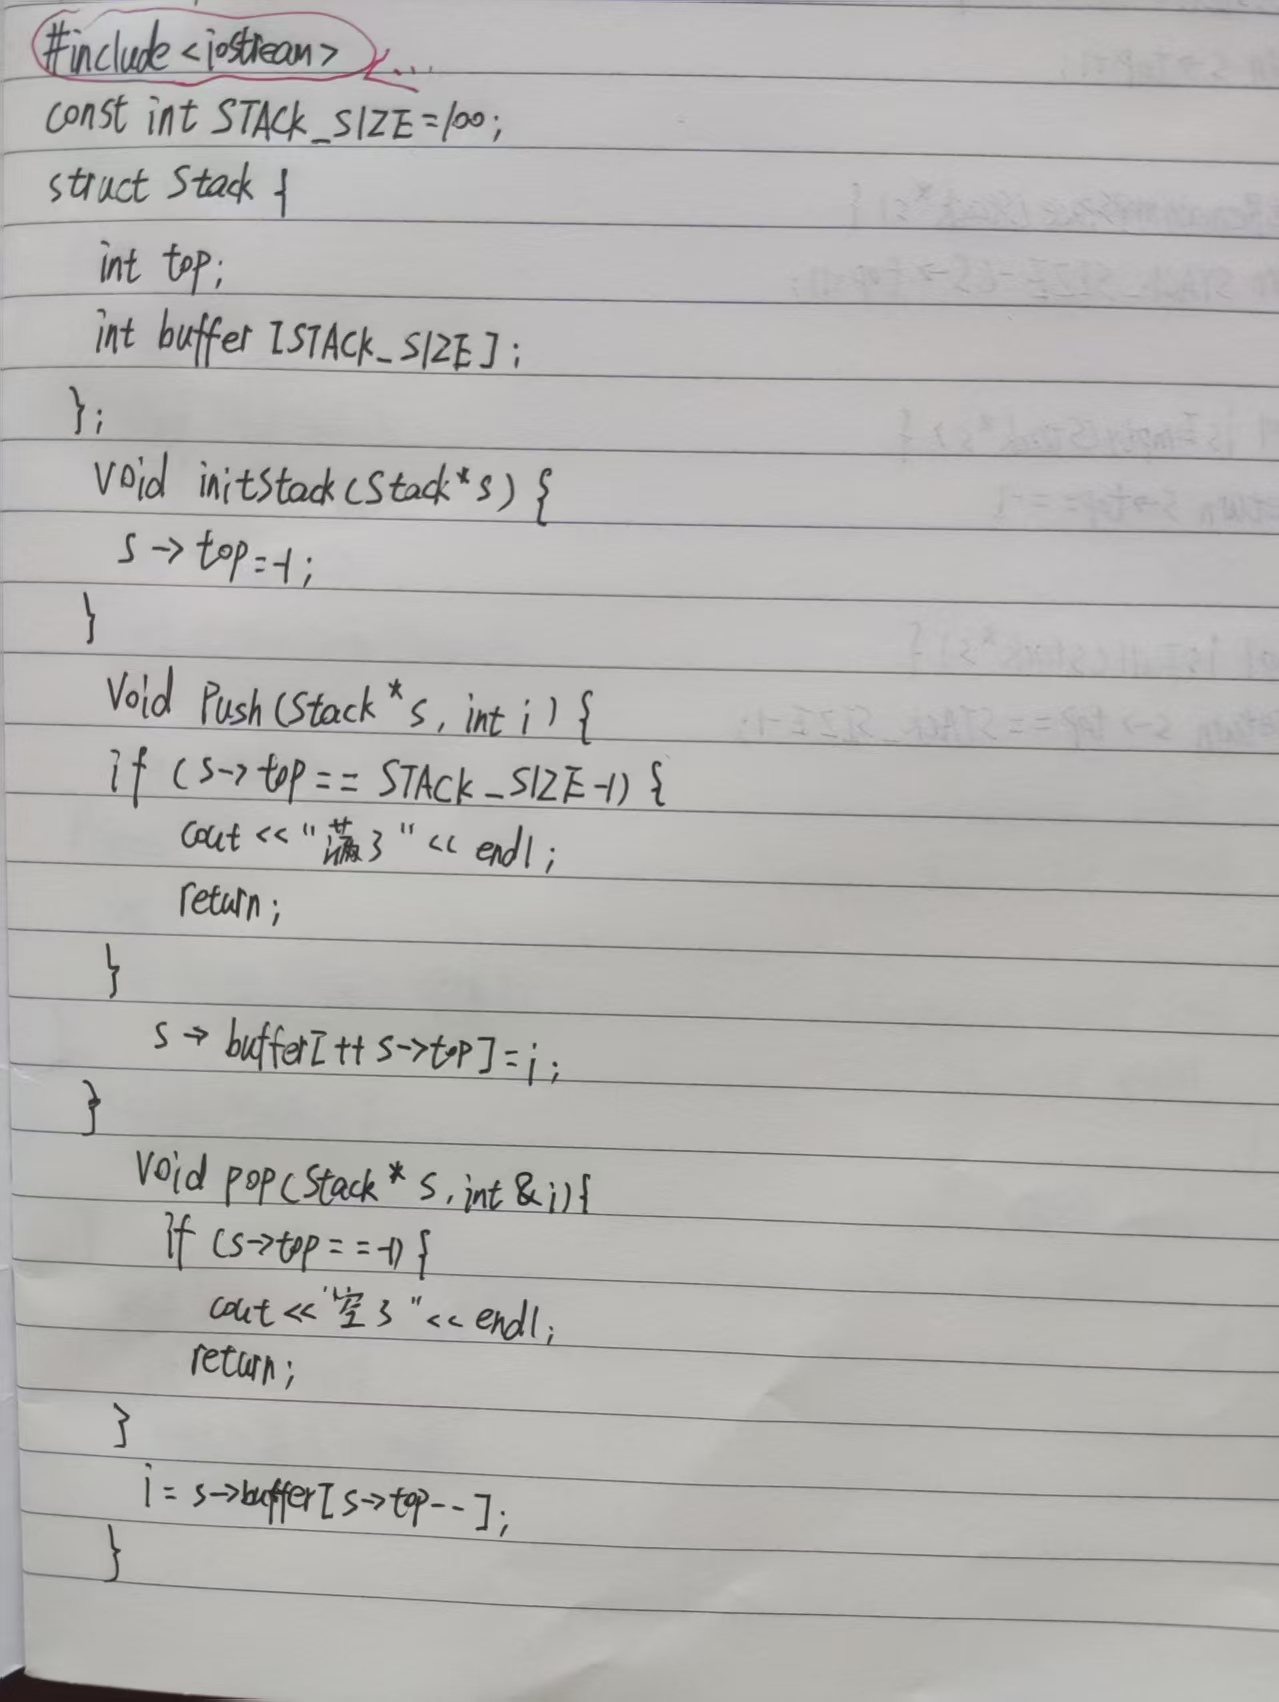 #include<iostream>
const int STACK_SIZE=100;
struct Stack {
int top;
int buffer [STACK_SIZE];
};
void initStack(Stack*s) {
s->top=-1;
}
void Push(Stack*s, int i) {
if (s->top == STACK_SIZE-1) {
cout << "满了" << endl;
return;
}
s->buffer[++s->top]=i;
}
void pop(Stack* s, int &i){
if (s->top==-1) {
cout << "空了" << endl;
return;
}
i = s->buffer[s->top--];
}